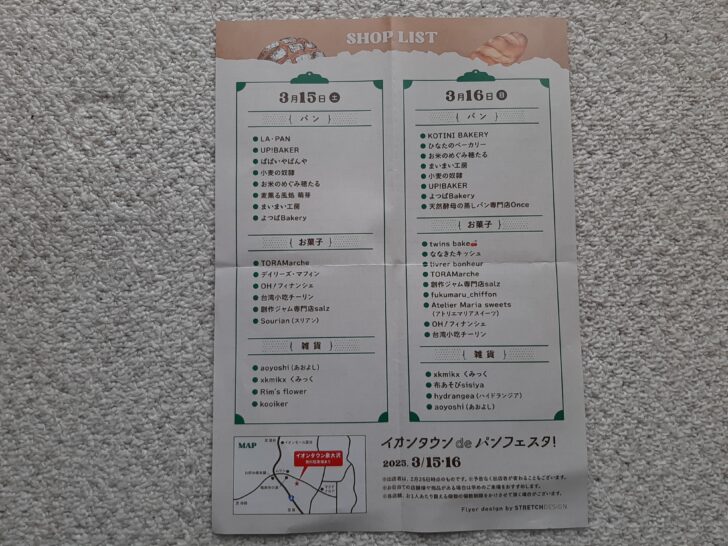 SHOP LIST
3月15日 土
パン
LA・PAN
UP!BAKER
ぱぱいやぱんや
小麦の奴隷
お米のめぐみ穂たる
麦薫る風処 萌芽
まいまい工房
よつばBakery
お菓子
TORAMarche
デイリーズ・マフィン
OH!フィナンシェ
台湾小吃チーリン
創作ジャム専門店salz
Sourian(スリアン)
雑貨
aoyoshi(あおよし)
xkmikx くみっく
Rim's flower
kooiker
3月16日 日
パン
KOTINI BAKERY
ひなたのベーカリー
お米のめぐみ穂たる
まいまい工房
小麦の奴隷
UP!BAKER
よつばBakery
天然酵母の蒸しパン専門店Once
お菓子
twins bake
ななきたキッシュ
livrer bonheur
TORAMarche
創作ジャム専門店salz
fukumaru_chiffon
Atelier Maria sweets
(アトリエマリアスイーツ)
OH!フィナンシェ
台湾小吃チーリン
雑貨
xkmikx くみっく
布あそびsisiya
hydrangea(ハイドランジア)
aoyoshi(あおよし)
MAP
イオンタウン泉大沢
イオンタウン de パンフェスタ!
2025. 3/15・16
※出店者は、2月25日時点のものです。※予告なく出店者が変わることもございます。
※お目当ての店舗様や商品がある場合は早めのご来場をおすすめします。
※各店舗、お1人あたり買える個数の個数制限をかけさせて頂く場合がございます。
Flyer design by STRETCHDESIGN